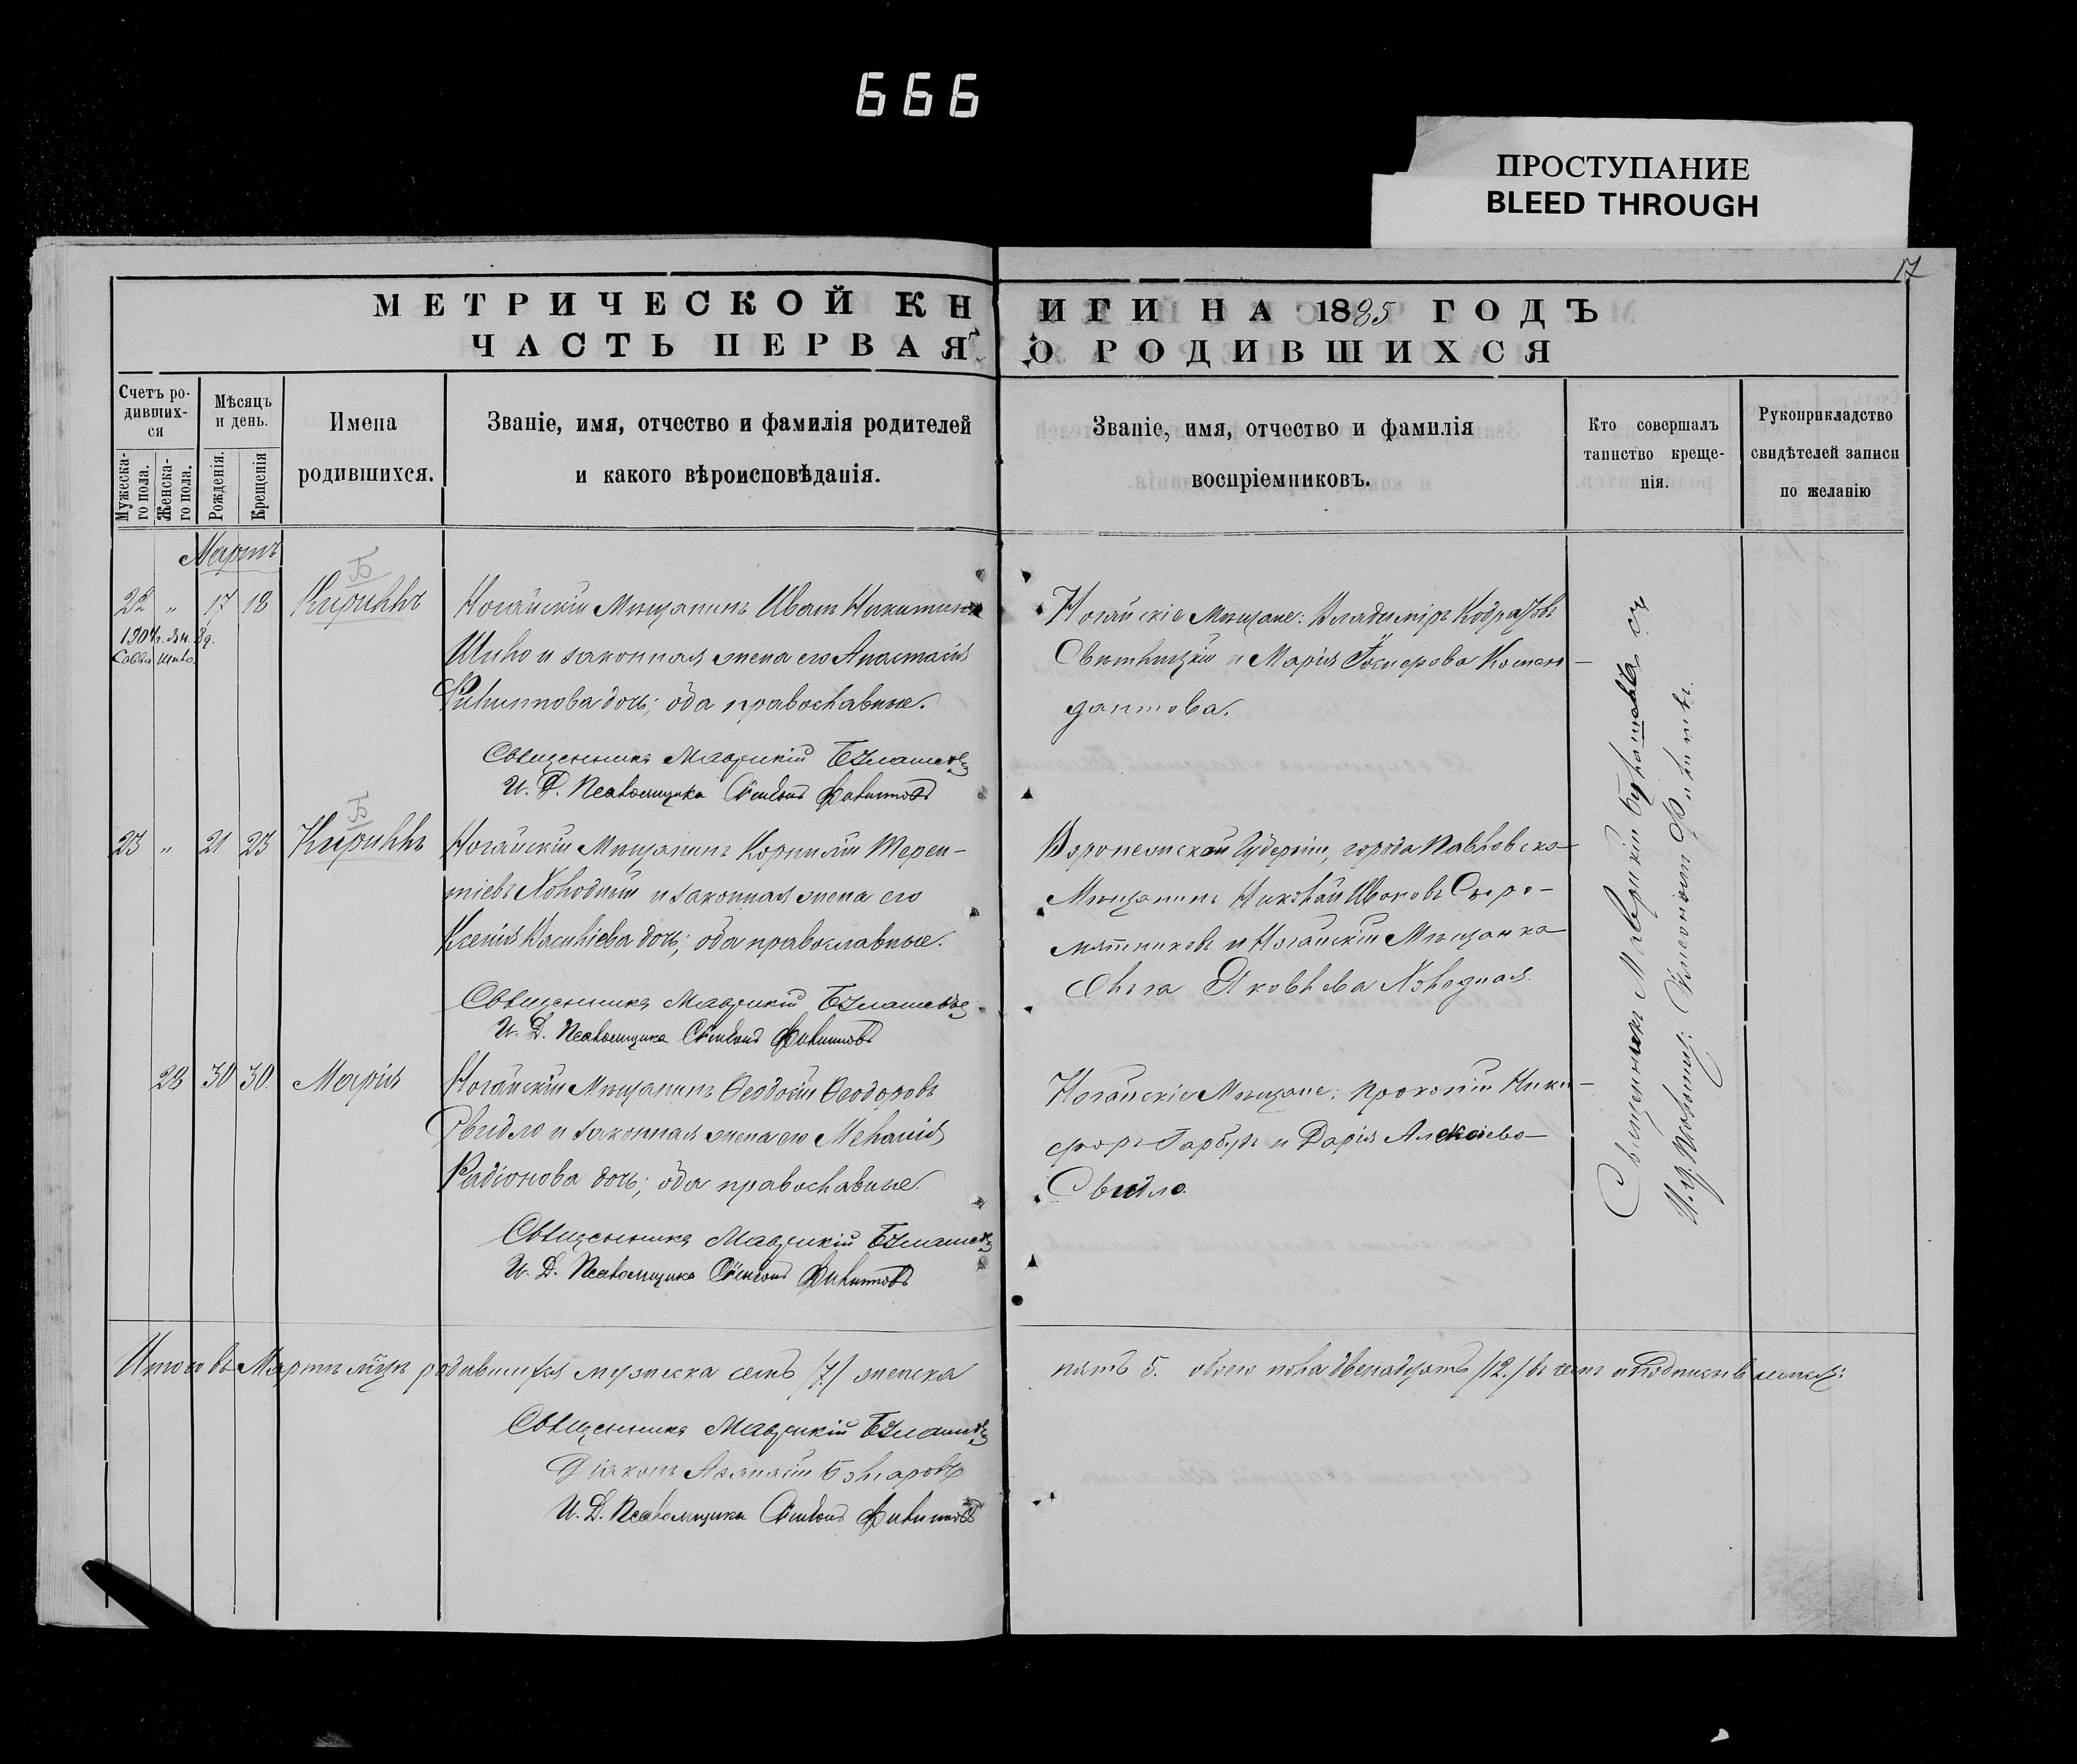 666
ПРОСТУПАНИЕ
BLEED THROUGH
17
МЕТРИЧЕСКОЙ КНИГИ НА 1885 ГОДЪ
ЧАСТЬ ПЕРВАЯ, О РОДИВШИХСЯ
Счетъ ро-
дивших-
ся
Мужеска-
го пола.
Женска-
го пола.
Мѣсяцъ
и день.
Рожденія.
Крещенія
Имена
родившихся.
Званіе, имя, отчество и фамилія родителей
и какого вѣроисповѣданія.
Званіе, имя, отчество и фамилія
воспріемниковъ.
Кто совершалъ
таинство креще-
нія.
Рукоприкладство
свидѣтелей записи
по желанію
Мартъ
Б
22 " 17 18 Кириллъ
Ногайскій Мѣщанинъ Иванъ Никитинъ
Шило и законная жена его Анастасія
Филиппова дочь; оба православные.
Священникъ Маврикій
И. Д. Псаломщика Филипповъ
Ногайскіе Мѣщане: Владиміръ
и Марія
дантова.
Б
23 " 21 23 Кириллъ
Ногайскій Мѣщанинъ Корнилій Терен-
тіевъ Холодный и законная жена его
Ксенія Василіева дочь; оба православные.
Священникъ Маврикій
И. Д. Псаломщика Филипповъ
Воронежской Губерніи, города Павловска
Мѣщанинъ Николай Ивановъ Сыро-
мятниковъ и Ногайскій Мѣщанка
Ольга Яковлева Холодная.
28 30 30 Марія
Ногайскій Мѣщанинъ Ѳеодосій Ѳеодоровъ
Свидло и законная жена его Меланія
Радіонова дочь; оба православные.
Священникъ Маврикій
И. Д. Псаломщика Филипповъ
Ногайскіе Мѣщане: Прокопій Ники-
форъ Гарбузъ и Дарія Алексіева
Свидло.
Священникъ Маврикій
И. д. Псаломщ: Филип.
Итого въ Мартѣ родившихся мужеска семь /7/ женска
пять 5. обоего пола двенадцать /12./ въ чемъ и подписываемся:
Священникъ Маврикій
Діаконъ Аѳанасій
И. Д. Псаломщика Филипповъ